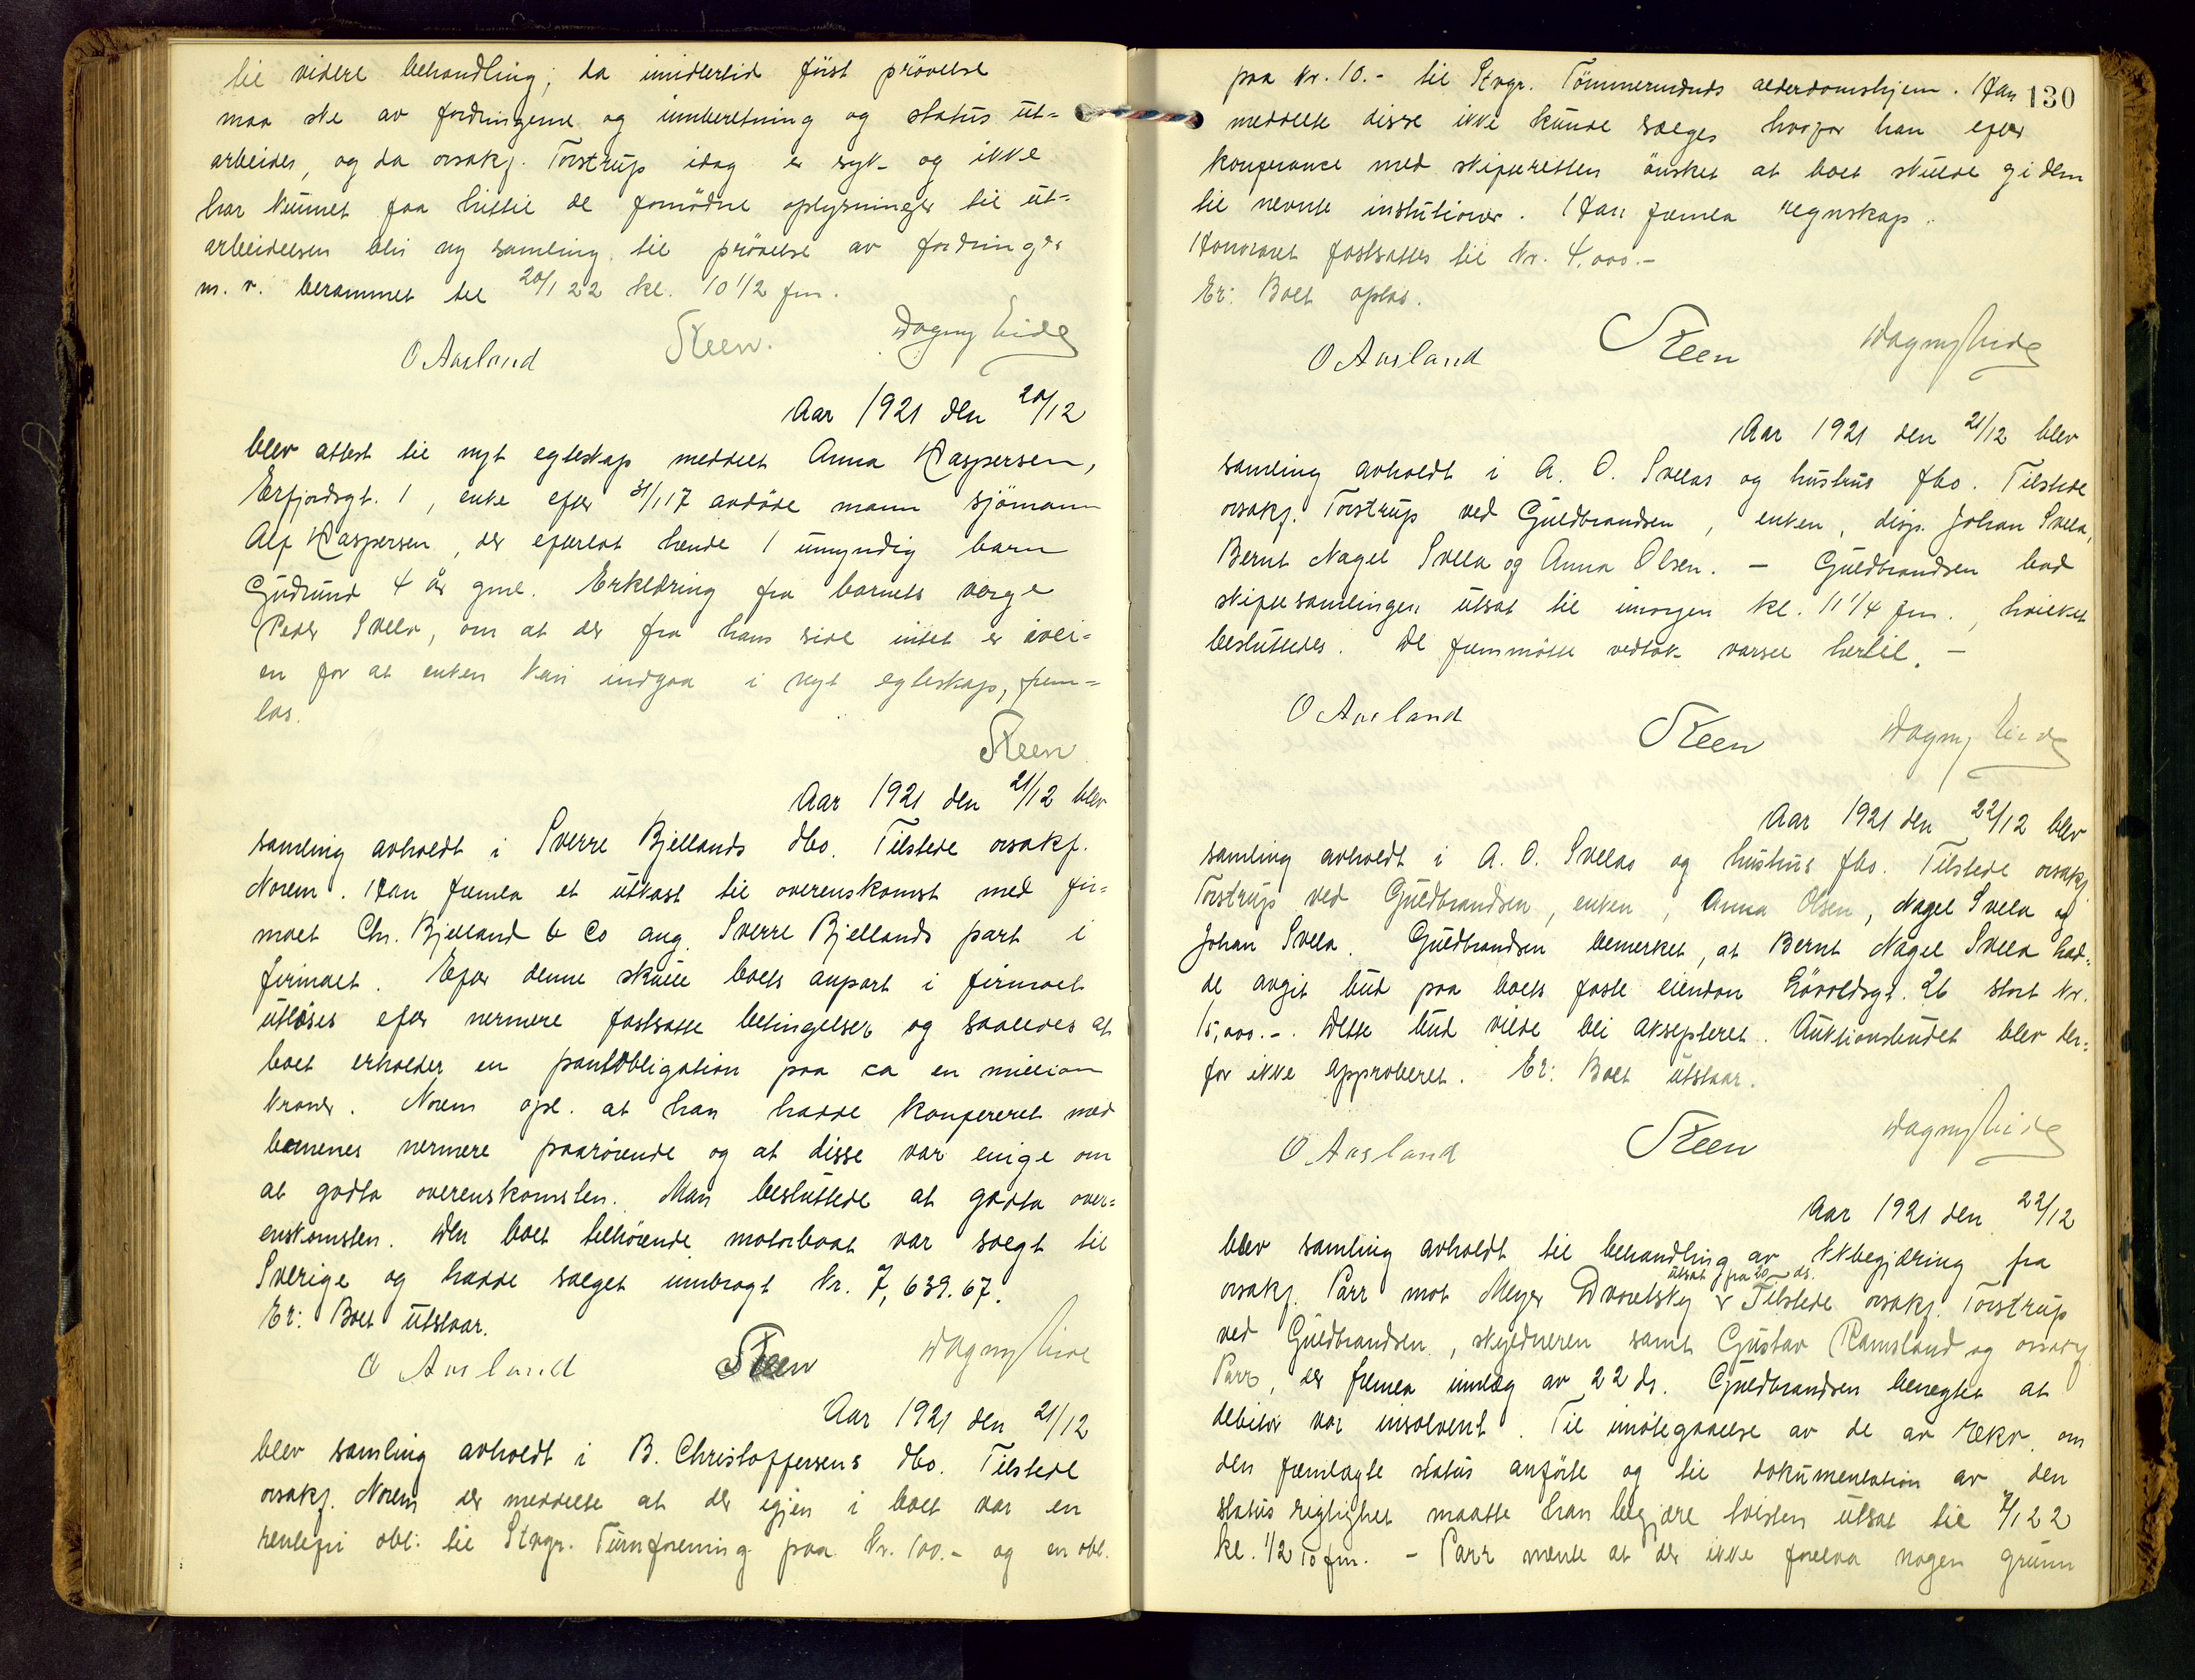 til videre behandling; da imidlertid först prövelse
maa ske av fordringerne og innberetning og status ut-
arbeides, og da orsakf. Torstrup idag er syk og ikke
har kunnet faa hittil de fornödne oplysninger til ut-
arbeidelsen blir ny samling til prövelse av fordringer
m. v. berammet til 20/1 22 kl. 10 1/2 fm.
O Aasland Steen. Dagny Eide
Aar 1921 den 20/12
blev attest til nyt egteskap meddelt Anna Kaspersen,
Erfjordsgt. 1, enke efter 31/1 17 avdöde mann sjömann
Alf Kaspersen, der efterlot hende 1 umyndig barn
Gudrund 4 år gml. Erklæring fra barnets verge
Peder Svela, om at der fra hans side intet er ivei-
en for at enken kan indgaa i nyt egteskap, frem-
las.
Steen
Aar 1921 den 21/12 blev
samling avholdt i Sverre Bjellands dbo. Tilstede orsakf.
Norem. Han fremla et utkast til overenskomst med fir-
maet Chr. Bjelland & Co ang. Sverre Bjellands part i
firmaet. Efter denne skulle boets anpart i firmaet
utlöses efter nermere fastsatte betingelser og saaledes at
boet erholder en pantobligation paa ca en million
kroner. Norem opl. at han hadde konfereret med
barnenes nermere paarörende og at disse var enige om
at godta overenskomsten. Man besluttede at godta over-
enskomsten. Den boet tilhörende motorbaat var solgt til
Sverige og hadde salget innbragt kr. 7,639.67.
Er: Boet utstaar.
O Aasland Steen Dagny Eide
Aar 1921 den 21/12
blev samling avholdt i B. Christoffersens dbo. Tilstede
orsakf. Norem der meddelte at der igjen i boet var en
rentefri obl: til Stvgr. Turnforening paa kr. 100.- og en obl.
130
paa kr. 10.- til Stvgr. Tömmermænds alderdomshjem. Han
meddelte disse ikke kunde sælges hvorfor han efter
konferance med skifteretten önsket at boet skulde gi dem
til nevnte instutioner. Han fremla regnskap.
Honoraret fastsattes til kr. 4,000.-
Er: Boet oplas.
O Aasland Steen Dagny Eide
Aar 1921 den 21/12 blev
samling avholdt i A. O. Svelas og hustrus fbo. Tilstede
orsakf. Torstrup ved Guldbrandsen, enken, disp. Johan Svela,
Bernt Nagel Svela og Anna Olsen. - Guldbrandsen bad
skiftesamlingen utsat til imorgen kl. 11 1/4 fm., hvilket
besluttedes. De fremmötte vedtok varsel hertil. -
O Aasland Steen Dagny Eide
Aar 1921 den 22/12 blev
samling avholdt i A. O. Svelas og hustrus fbo. Tilstede orsakf
Torstrup ved Guldbrandsen, enken, Anna Olsen, Nagel Svela og
Johan Svela. Guldbrandsen bemerket, at Bernt Nagel Svela had-
de avgit bud paa boets faste eiendom 26 stort kr.
15,000.-. Dette bud vilde bli aksepteret. Auktionsbudet blev der-
for ikke approberet. Er: Boet utstaar.
O Aasland Steen Dagny Eide
Aar 1921 den 22/12
blev samling avholdt til behandling av kkbegjæring fra
utsat fra 20 ds.
orsakf. Parr mot Meyer Dvoretsky v Tilstede orsakf. Torstrup
ved Guldbrandsen, skyldneren samt Gustav Ramsland og orsakf
Parr, der fremla innlæg av 22 ds. Guldbrandsen benegtet at
debitor var insolvent. Til imötegaaelse av de av rekv. om
den fremlagte status anförte og til dokumentation av den
status rigtighet maatte han begjære tvisten utsat til 7/1 22
kl. 1/2 10 fm. - Parr mente at der ikke forelaa nogen grunn